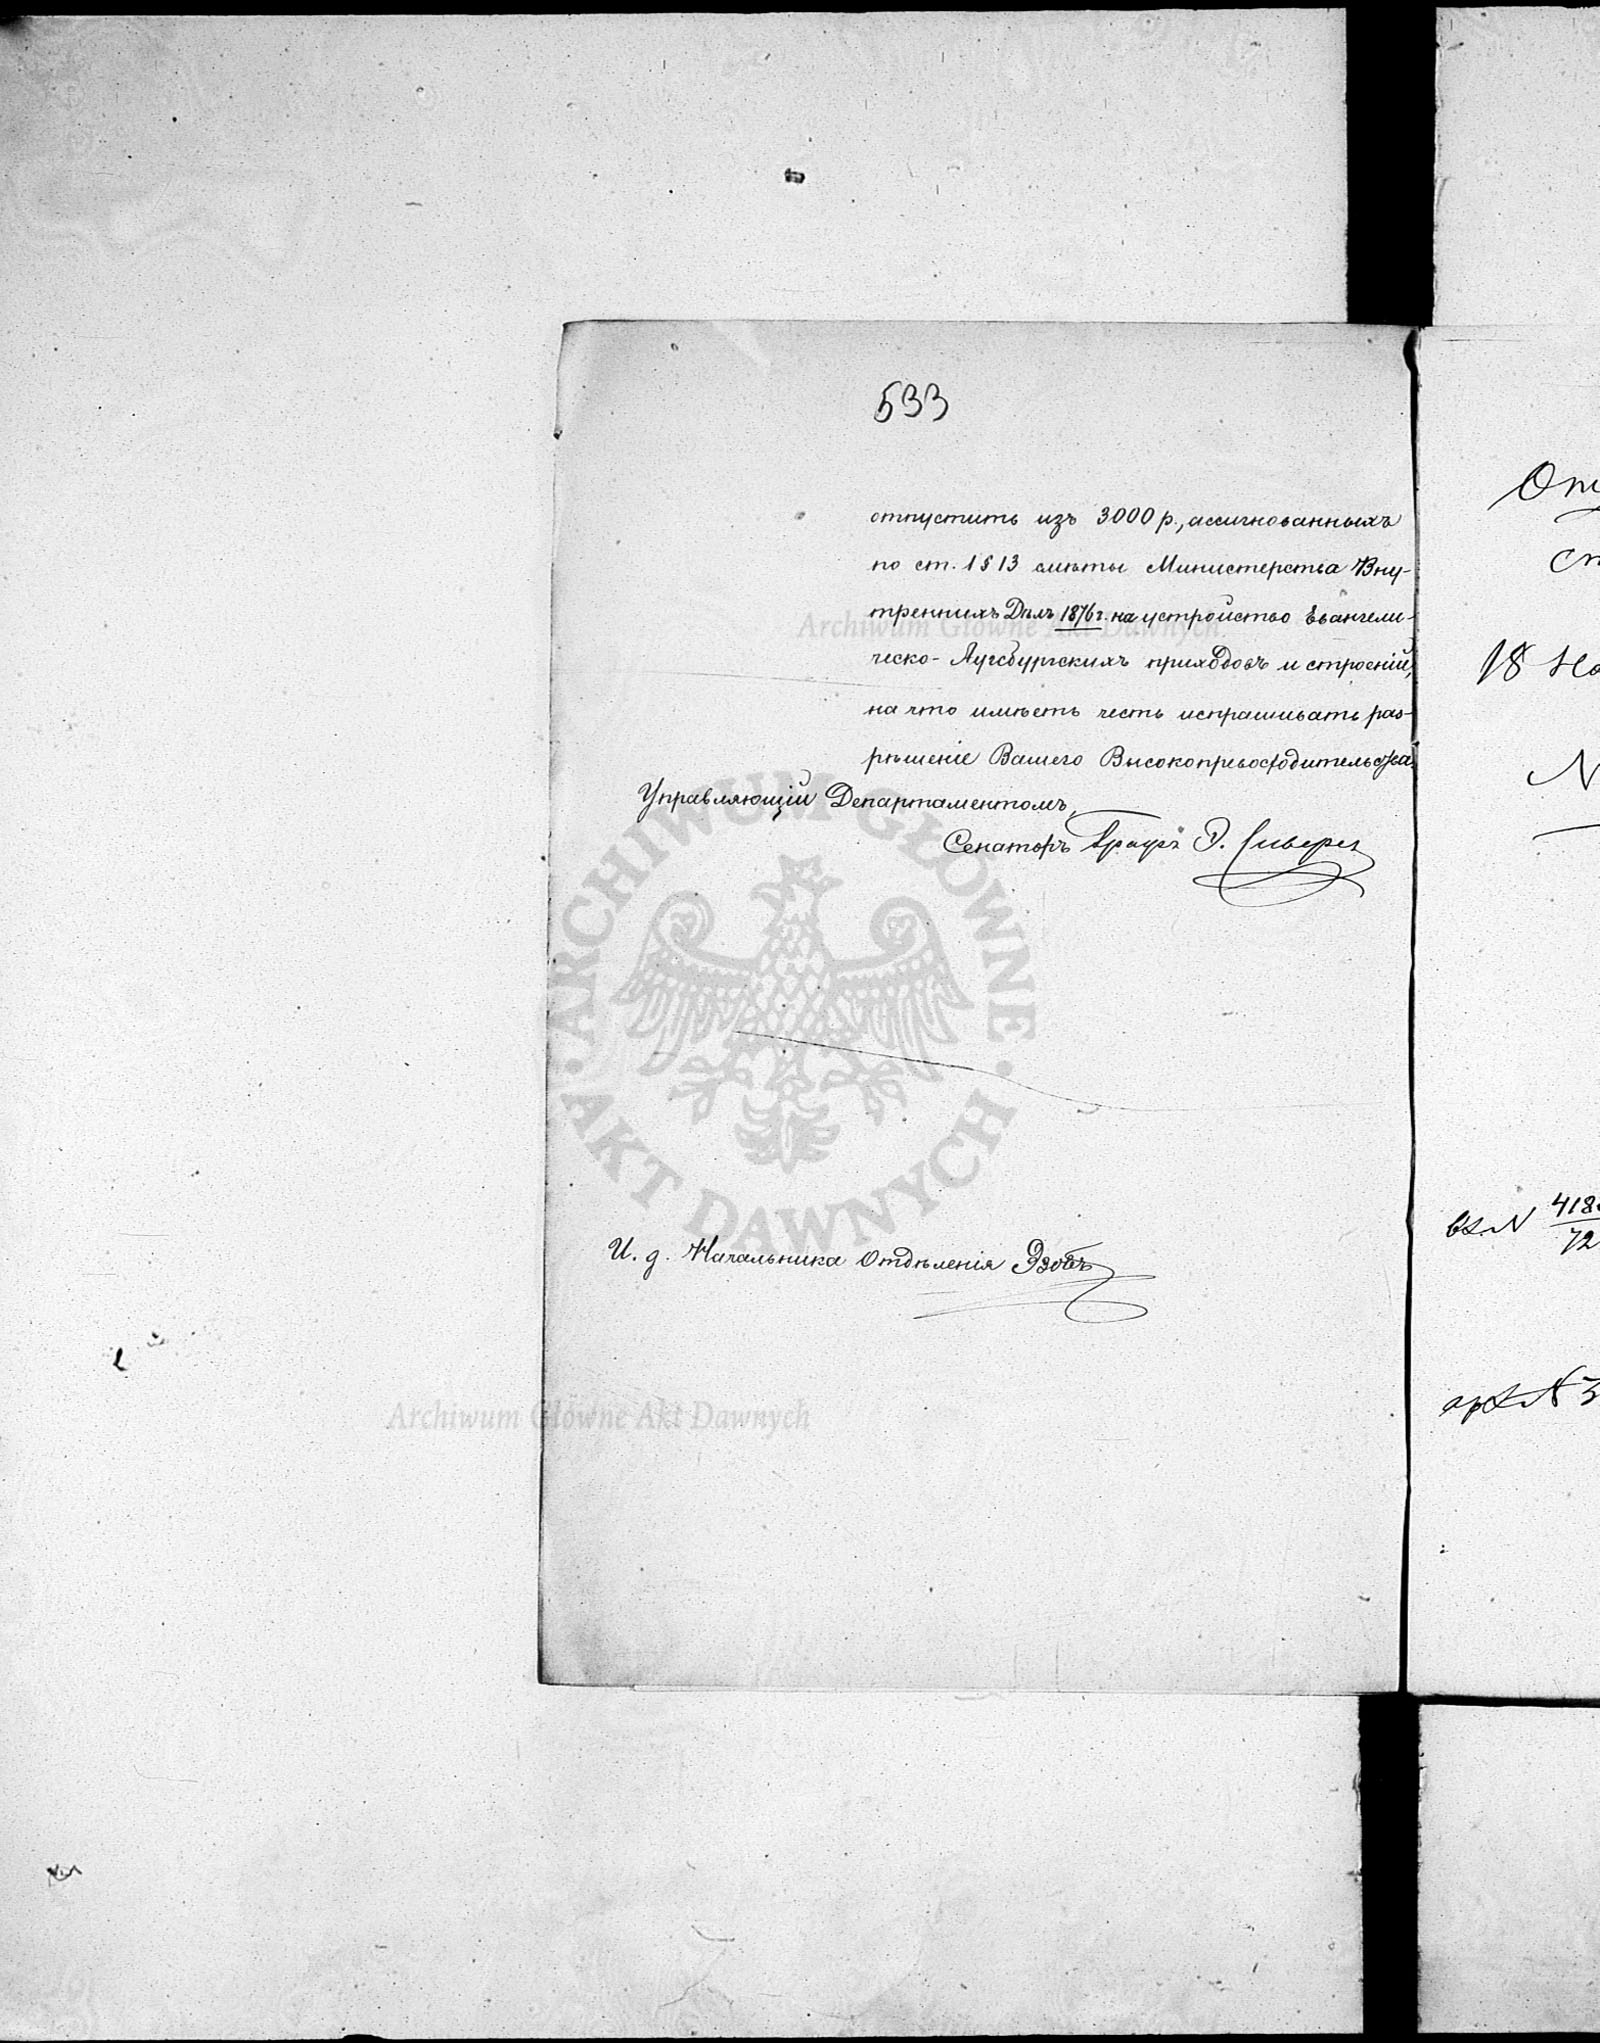 533
отпустить изъ 3000 р., ассигнованныхъ
по ст. 1 § 13 смѣты Министерства Вну-
треннихъ Дѣлъ 1876 г. на устройство Евангели-
ческо-Аугсбургскихъ приходовъ и строеній,
на что имѣетъ честь испрашивать раз-
рѣшеніе Вашего Высокопревосходительства.
Управляющій Департаментомъ,
Сенаторъ Графъ Э. Сиверсъ
И. д. Начальника Отдѣленія
18
N
вх. N 418
72
арх N 3
Archiwum Główne Akt Dawnych
ARCHIWUM GŁÓWNE · AKT DAWNYCH ·
Archiwum Główne Akt Dawnych